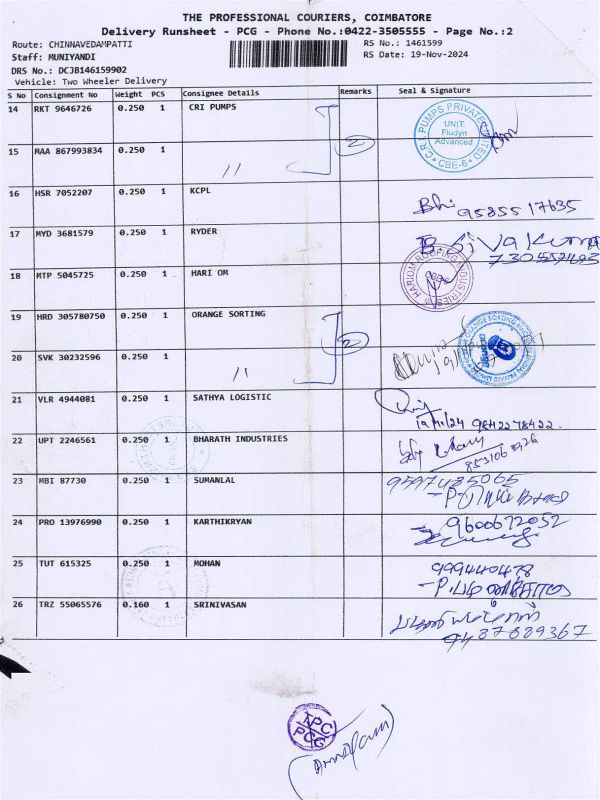 THE PROFESSIONAL COURIERS, COIMBATORE
Delivery Runsheet - PCG - Phone No.:0422-3505555 - Page No.:2
Route: CHINNAVEDAMPATTI
RS No.: 1461599
Staff: MUNIYANDI
RS Date: 19-Nov-2024
DRS No.: DCJB146159902
Vehicle: Two Wheeler Delivery
S No Consignment No Weight PCS Consignee Details Remarks Seal & Signature
14 RKT 9646726 0.250 1 CRI PUMPS
C.R.I. PUMPS PRIVATE LIMITED
UNIT:
Fludyn
Advanced
CBE-6
2
15 MAA 867993834 0.250 1 "
16 HSR 7052207 0.250 1 KCPL
9585517635
17 MYD 3681579 0.250 1 RYDER
B Sivakumar
18 MTP 5045725 0.250 1 HARI OM
HARIOM ROOFING INDUSTRIES
19 HRD 305780750 0.250 1 ORANGE SORTING
2
20 SVK 30232596 0.250 1 "
21 VLR 4944081 0.250 1 SATHYA LOGISTIC
19/11/24 9842278422.
22 UPT 2246561 0.250 1 BHARATH INDUSTRIES
23 MBI 87730 0.250 1 SUMANLAL
9597485065
24 PRO 13976990 0.250 1 KARTHIKRYAN
9600672052
25 TUT 615325 0.250 1 MOHAN
26 TRZ 55065576 0.160 1 SRINIVASAN
9487889367
TPC
PCG